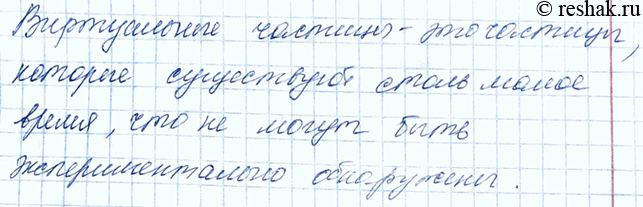 © reshak.ru
Виртуальные частицы - это частицы,
которые существуют столь малое
время, что не могут быть
экспериментально обнаружены.